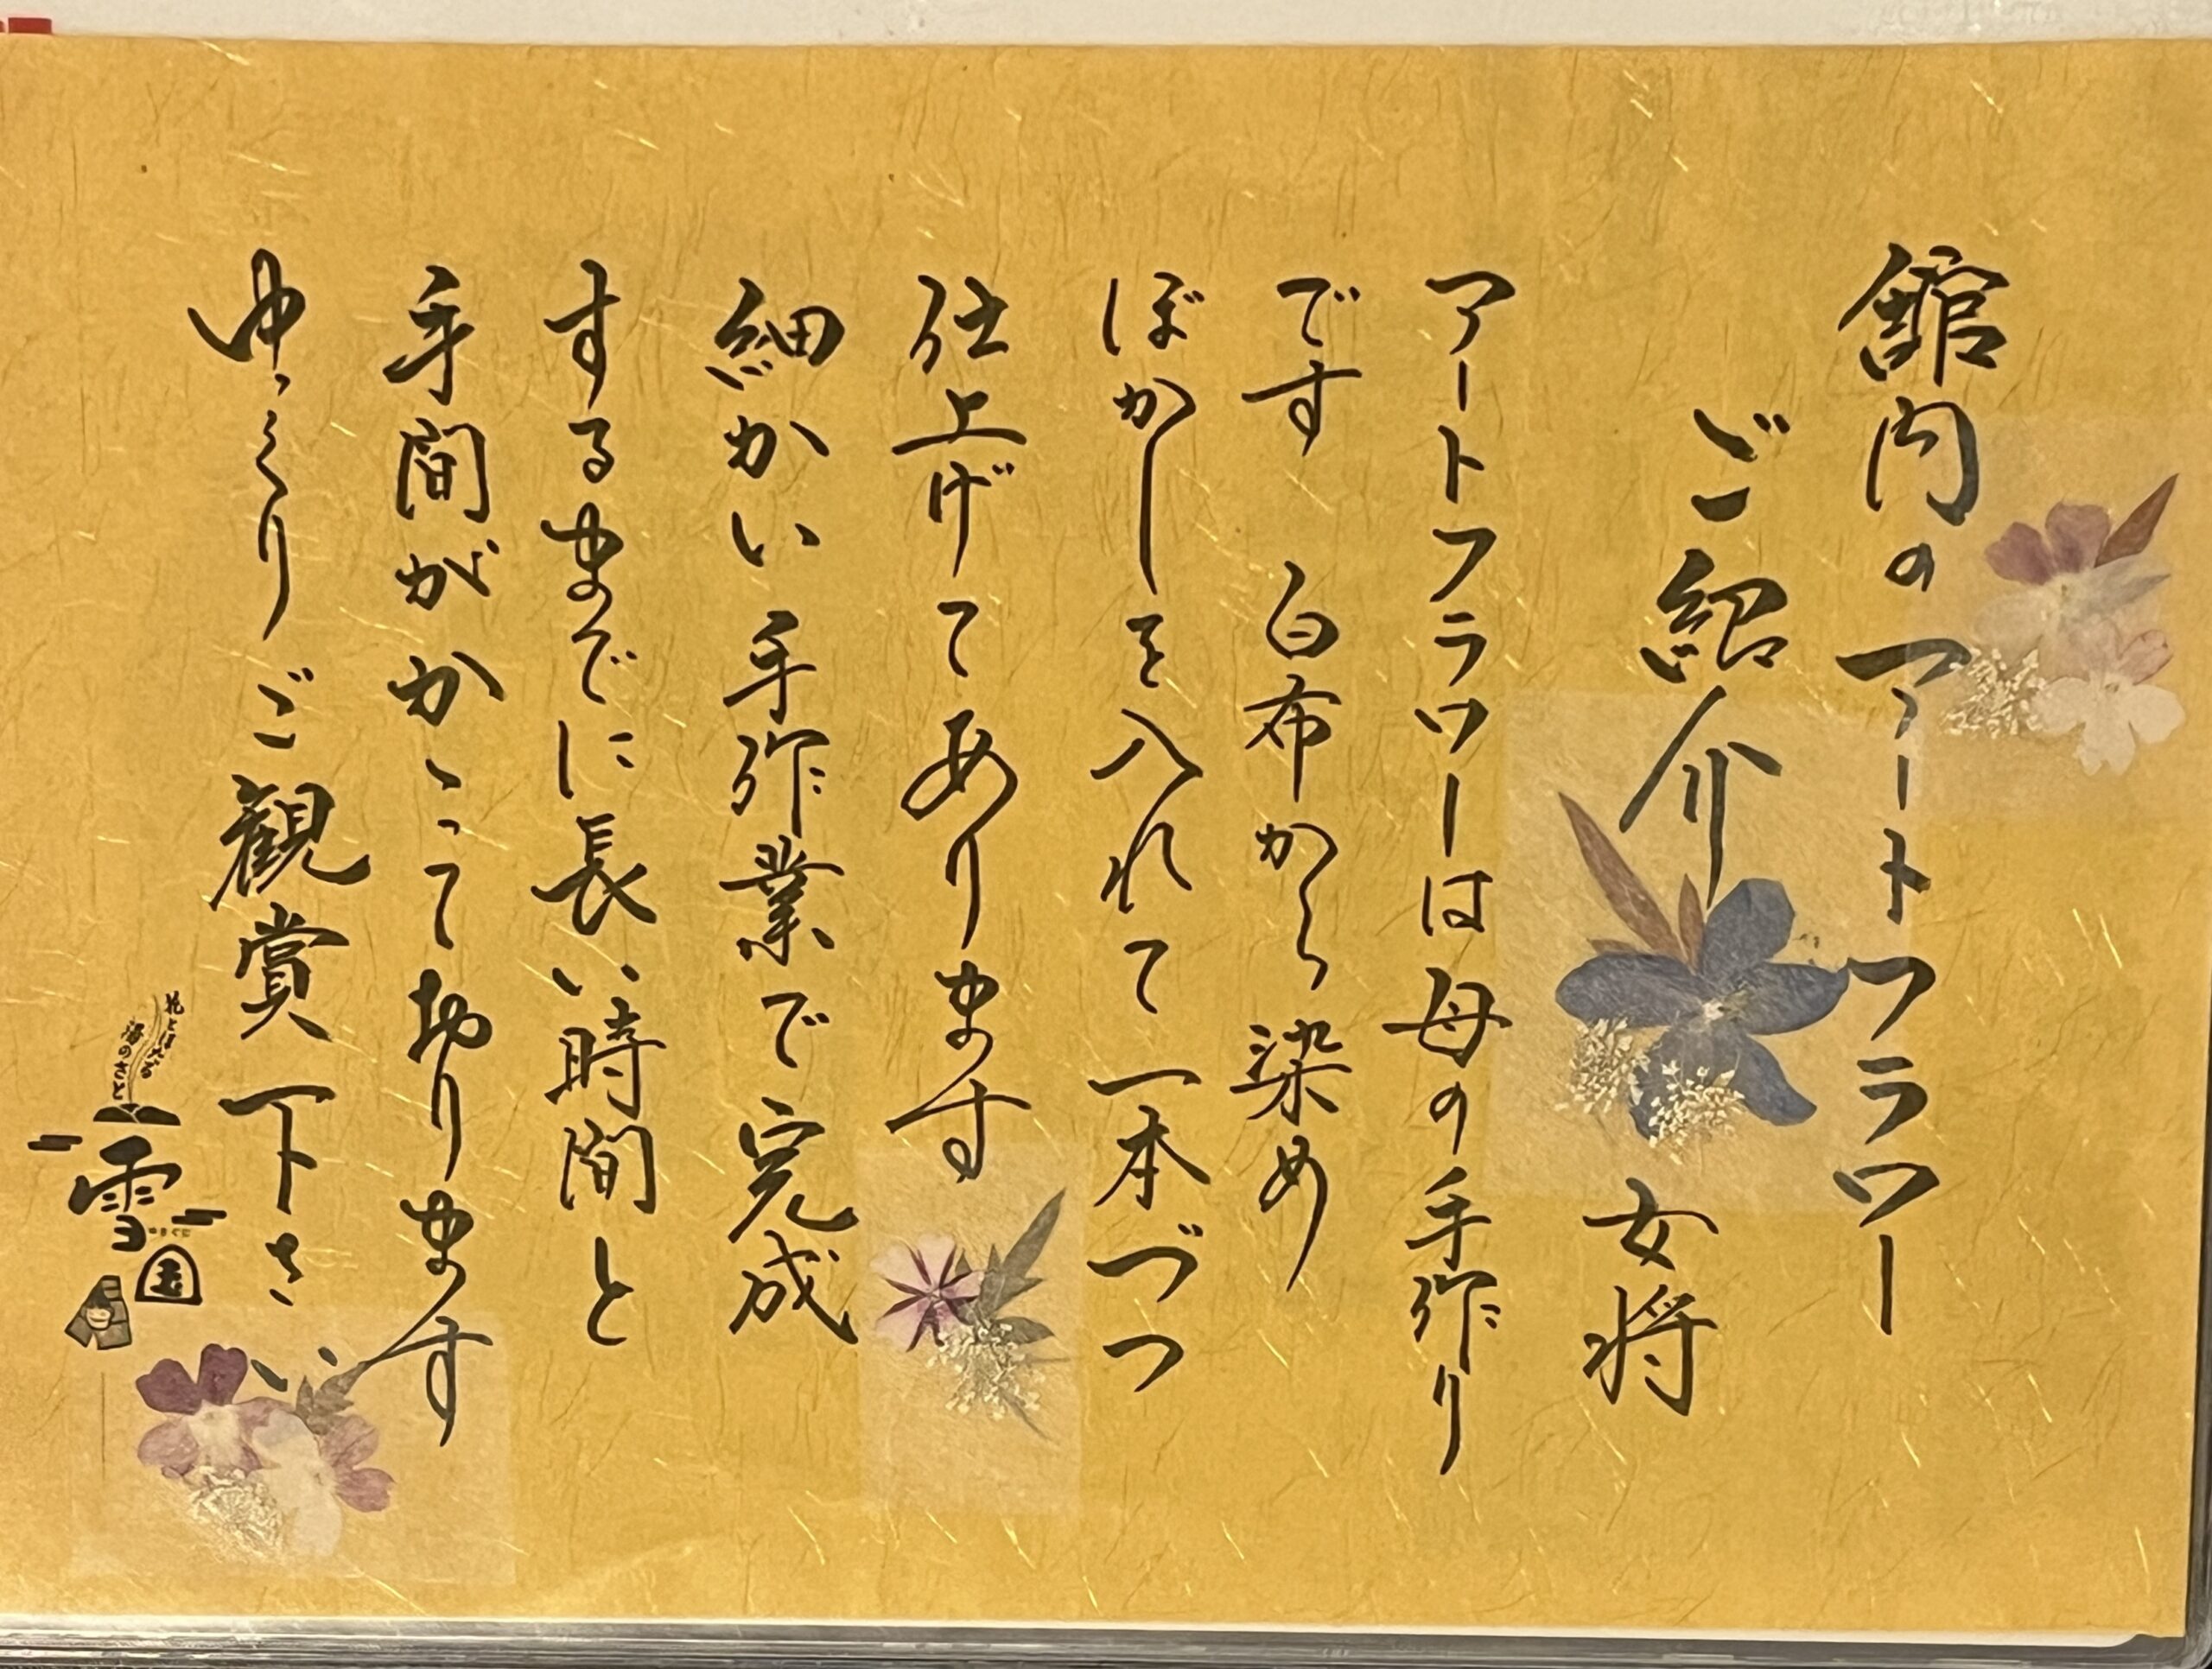 舘内のアートフラワー
ご紹介
女将
アートフラワーは母の手作り
です 白布から染め
ぼかしを入れて一本づつ
仕上げてあります
細かい手作業で完成
するまでに長い時間と
手間がかゝっております
ゆっくりご観賞下さい
花とほたる
湯のさと
雪
国
ゆきぐに